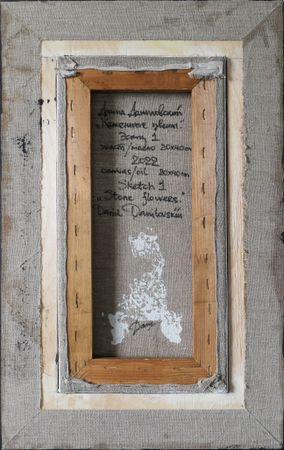 Данил Даниловский
„Каменные цветы".
Эскиз 1
холст/масло 20х40см
2022
canvas/oil 20x40cm
Sketch 1
„Stone flowers."
Danil Danilovskii